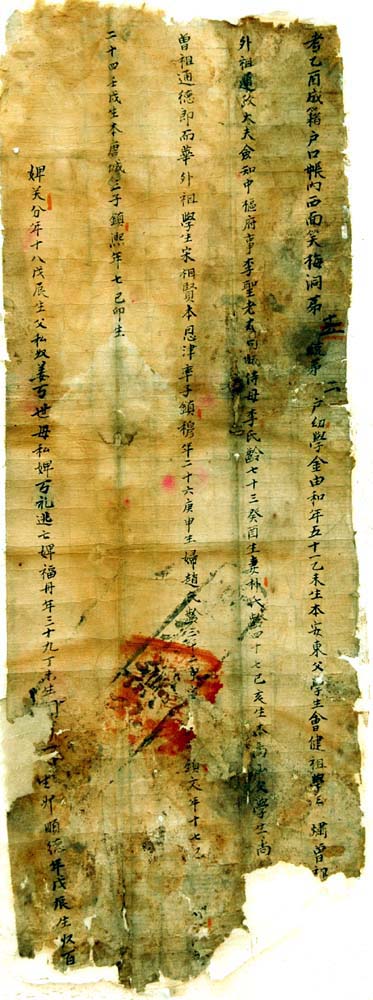 考乙酉成籍戶口帳內西面笑梅洞第 統第二戶幼學金由和年五十一乙未生本安東父學生會健祖學生 㷩曾祖
外祖通政大夫僉知中樞府事李聖老 侍母李氏齡七十三癸酉生妻朴氏齡四十七己亥生本高 父學生尙
曾祖通德郞而華外祖學生宋相賢本恩津率子鎭穆年二十六庚申生婦趙氏齡二十 鎭天年十七己
二十四壬戌生本唐城 子鎭熙年七己卯生
婢 分年十八戊辰生父私奴姜百世母私婢百礼逃亡婢福丹年三十九丁未生 卯順德年戊辰生奴百